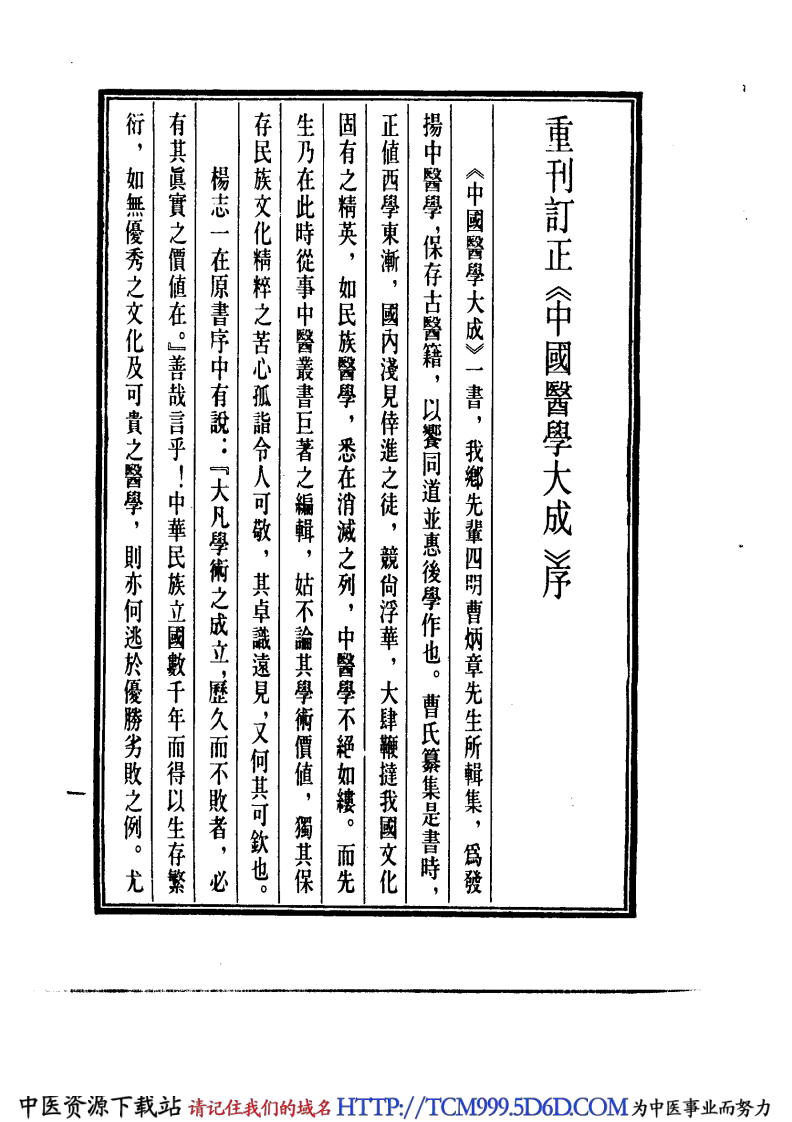 重刊訂正《中國醫學大成》序
《中國醫學大成》一書，我鄉先輩四明曹炳章先生所輯集，爲發
揚中醫學，保存古醫籍，以饗同道並惠後學作也。曹氏纂集是書時，
正値西學東漸，國內淺見倖進之徒，競尙浮華，大肆鞭撻我國文化
固有之精英，如民族醫學，悉在消滅之列，中醫學不絕如縷。而先
生乃在此時從事中醫叢書巨著之編輯，姑不論其學術價值，獨其保
存民族文化精粹之苦心孤詣令人可敬，其卓識遠見，又何其可欽也。
楊志一在原書序中有說：『大凡學術之成立，歷久而不敗者，必
有其眞實之價値在。』善哉言乎！中華民族立國數千年而得以生存繁
衍，如無優秀之文化及可貴之醫學，則亦何逃於優勝劣敗之例。尤
一
中医资源下载站 请记住我们的域名 HTTP://TCM999.5D6D.COM 为中医事业而努力